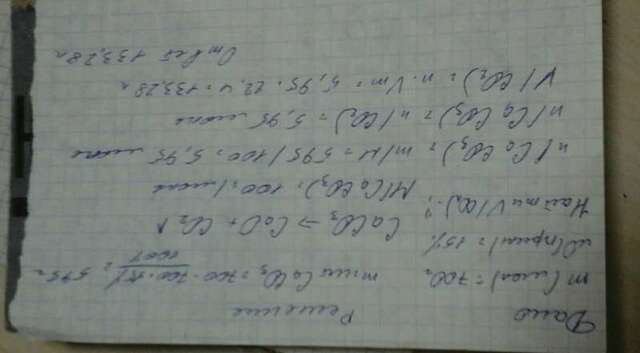 Дано Решение
m(
) = 700г m чис CaCO3 = 700 - 700·15% / 100% = 595г
ω(прим) = 15%
CaCO3 → CaO + CO2↑
Найти V(CO2)-?
M(CaCO3) = 100г/моль
n(CaCO3) = m/M = 595/100 = 5,95 моль
n(CaCO3) = n(CO2) = 5,95 моль
V(CO2) = n·Vm = 5,95·22,4 = 133,28л
Ответ 133,28л